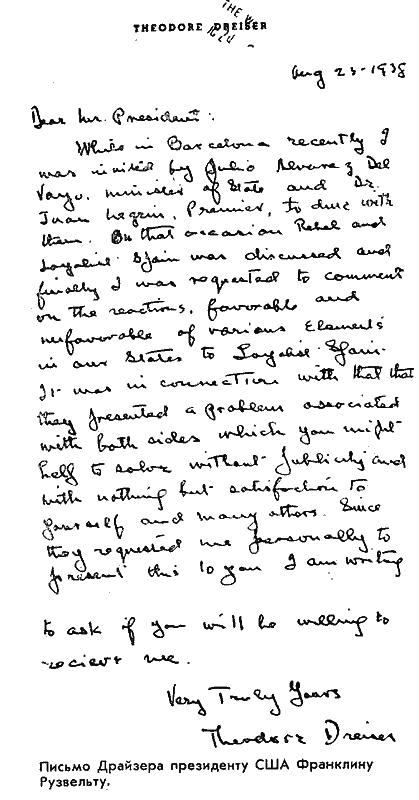 THEODORE DREISER
THE W
Aug 23-1938
Dear Mr. President:
While in Barcelona recently I
was invited by Julio Alvarez Del
Vayo, minister of State and Dr.
Juan Negrin, Premier, to dine with
them. On that occasion Rebel and
Loyalist Spain was discussed and
finally I was requested to comment
on the reactions, favorable and
unfavorable of various Elements
in our States to Loyalist Spain.
It was in connection with that that
they presented a problem associated
with both sides which you might
help to solve without publicity and
with nothing but satisfaction to
yourself and many others. Since
they requested me personally to
present this to you I am writing
to ask if you will be willing to
recieve me.
Very Truly Yours
Theodore Dreiser
Письмо Драйзера президенту США Франклину
Рузвельту.